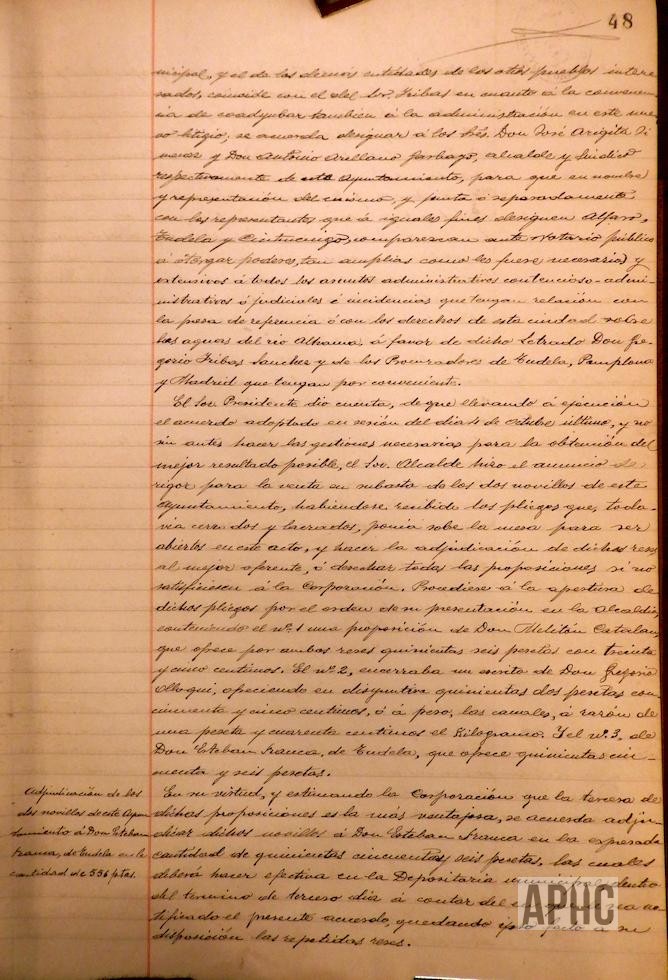 48
nicipal, y el de las demás entidades de los otros pueblos intere-
sados, coincide con el del Sr. Tribas en cuanto á la convenien-
cia de coadyubar tambien á la administración en este nue-
vo litigio; se acuerda designar á los Sres. Don José Arigita Ji
menez y Don Antonio Arellano, alcalde y Sindico
respectivamente de este Ayuntamiento, para que en nombre
y representación del mismo, y junta ó separadamente
con los representantes que á iguales fines designen Alfaro,
Tudela y Cintruénigo, comparezcan ante Notario público
á otorgar poderes, tan amplios como les fuere necesario, y
extensivos á todos los asuntos administrativos contencioso-admi-
nistrativos ó judiciales é incidencias que tengan relación con
la presa de referencia ó con los derechos de esta ciudad sobre
las aguas del rio Alhama, á favor de dicho Letrado Don Gre-
gorio Tribas Sanchez y de los Procuradores de Tudela, Pamplona
y Madrid que tengan por conveniente.
El Sor. Presidente dio cuenta, de que llevando á ejecución
el acuerdo adoptado en sesión del dia 4 de Octubre último, y no
sin antes hacer las gestiones necesarias para la obtención del
mejor resultado posible, el Sor. Alcalde hizo el anuncio de
rigor para la venta en subasta de los dos novillos de este
Ayuntamiento, habiéndose recibido los pliegos que, toda-
via cerrados y lacrados, ponia sobe la mesa para ser
abiertos en este acto, y hacer la adjudicación de dichas reses
al mejor oferente, ó desechar todas las proposiciones si no
satisficiesen á la Corporación. Procediese á la apertura de
dichos pliegos por el orden de su presentación en la Alcaldia,
conteniendo el nº. 1 una proposición de Don Melitón Catalan,
que ofrece por ambas reses quinientas seis pesetas con treinta
y cinco centimos. El nº. 2, encerraba un escrito de Don Gregorio
Olloqui, ofreciendo en disyuntiva quinientas dos pesetas con
cincuenta y cinco centimos, ó á peso, las canales, á razón de
una peseta y cuarenta centimos el Kilogramo. Y el nº. 3, de
Don Esteban Franca, de Tudela, que ofrece quinientas cin-
cuenta y seis pesetas.
Adjudicación de los
dos novillos de este Ayun
tamiento á Don Esteban
Franca, de Tudela en la
cantidad de 556 ptas.
En su virtud, y estimando la Corporación que la tercera de
dichas proposiciones es la más ventajosa, se acuerda adju-
dicar dichos novillos á Don Esteban Franca en la expresada
cantidad de quinientas cincuenta y seis pesetas, las cuales
deberá hacer efectiva en la Depositaria municipal dentro
del termino de tercero dia á contar del en que le sea no
tificado el presente acuerdo, quedando ipso facto á su
disposición las repetidas reses.
APHC